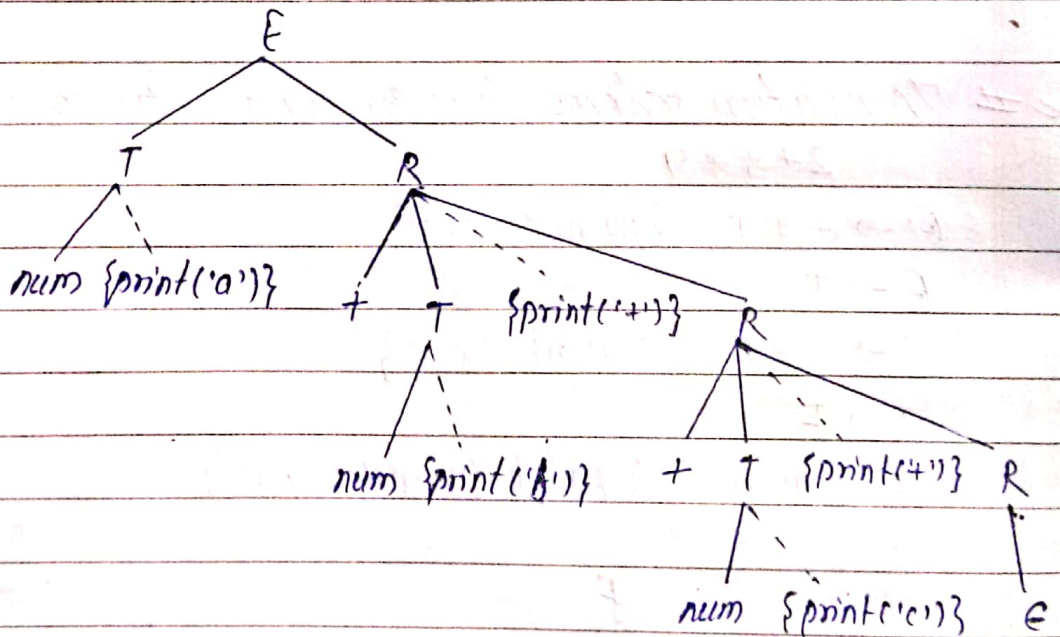 E
T R
num {print('a')} + T {print('+')} R
num {print('b')} + T {print('+')} R
num {print('c')} ϵ